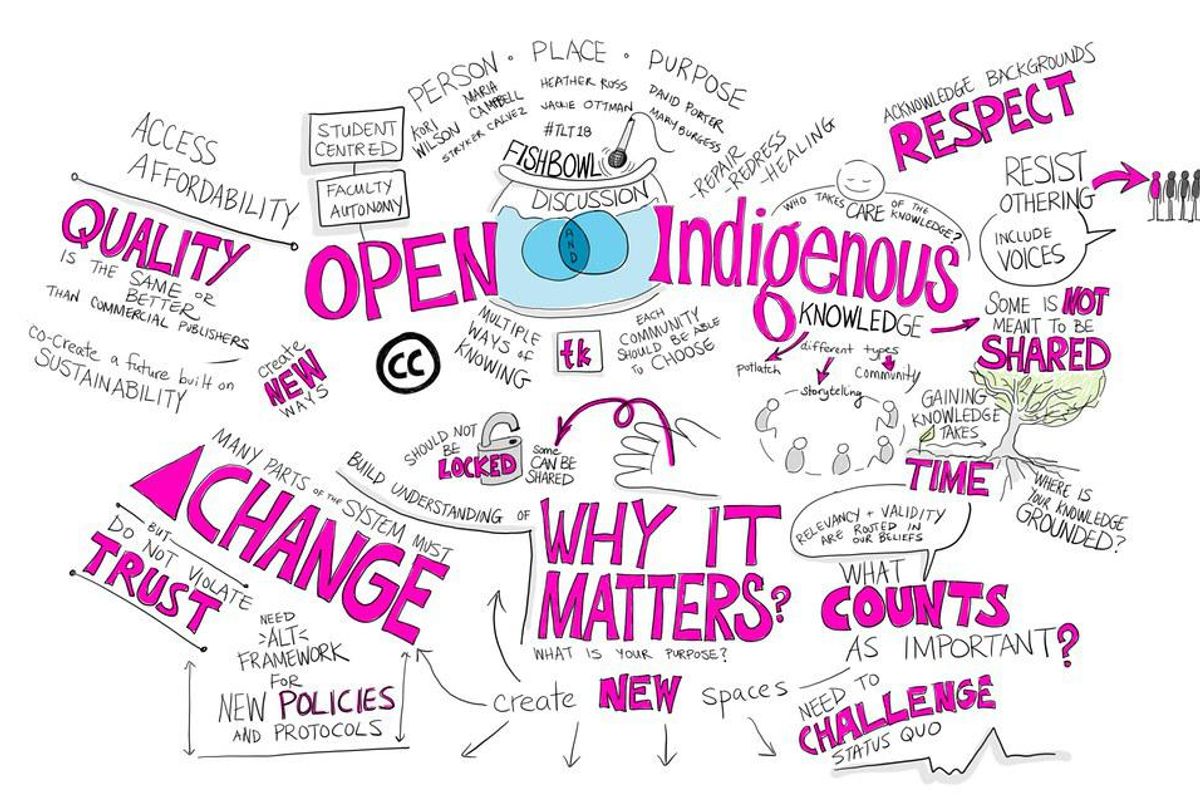 PERSON • PLACE • PURPOSE
KORI
WILSON
MARIA
CAMPBELL
STRYKER CALVEZ
HEATHER ROSS
JACKIE OTTMAN
#TLT18
DAVID PORTER
MARY BURGESS
FISHBOWL
DISCUSSION
STUDENT
CENTRED
FACULTY
AUTONOMY
ACCESS
AFFORDABILITY
QUALITY
IS THE SAME OR
BETTER
THAN COMMERCIAL PUBLISHERS
CO-Create a future built on
SUSTAINABILITY
create
NEW
WAYS
OPEN
AND
Indigenous
KNOWLEDGE
-REPAIR
-REDRESS
-HEALING
WHO TAKES CARE OF THE KNOWLEDGE?
ACKNOWLEDGE BACKGROUNDS
RESPECT
RESIST
OTHERING
INCLUDE
VOICES
SOME IS NOT
MEANT TO BE
SHARED
CC
MULTIPLE
WAYS OF
KNOWING
tk
EACH
COMMUNITY
SHOULD BE ABLE
TO CHOOSE
different types
Potlatch
Storytelling
Community
GAINING
KNOWLEDGE
TAKES
TIME
WHERE IS
YOUR KNOWLEDGE
GROUNDED?
SHOULD NOT
BE
LOCKED
Some
CAN BE
SHARED
MANY PARTS OF THE SYSTEM MUST
CHANGE
BUT
DO NOT VIOLATE
TRUST
NEED
ALT
FRAMEWORK
FOR
NEW POLICIES
AND PROTOCOLS
BUILD UNDERSTANDING OF
WHY IT
MATTERS?
WHAT IS YOUR PURPOSE?
create NEW spaces
RELEVANCY + VALIDITY
ARE ROOTED IN
OUR BELIEFS
WHAT
COUNTS
AS IMPORTANT?
NEED TO
CHALLENGE
STATUS QUO